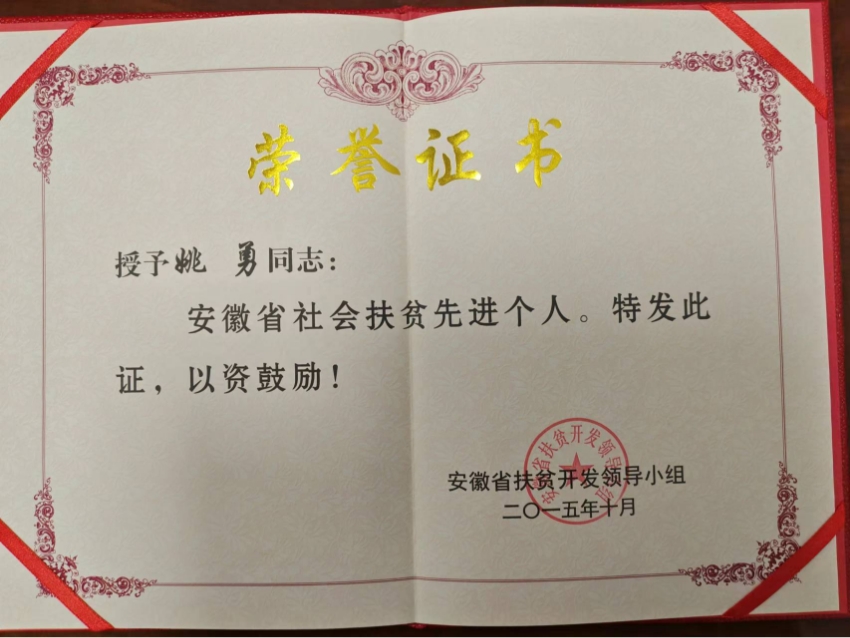 荣誉证书
授予姚 勇同志：
安徽省社会扶贫先进个人。特发此
证，以资鼓励！
安徽省扶贫开发领导小组
安徽省扶贫开发领导小组
二〇一五年十月